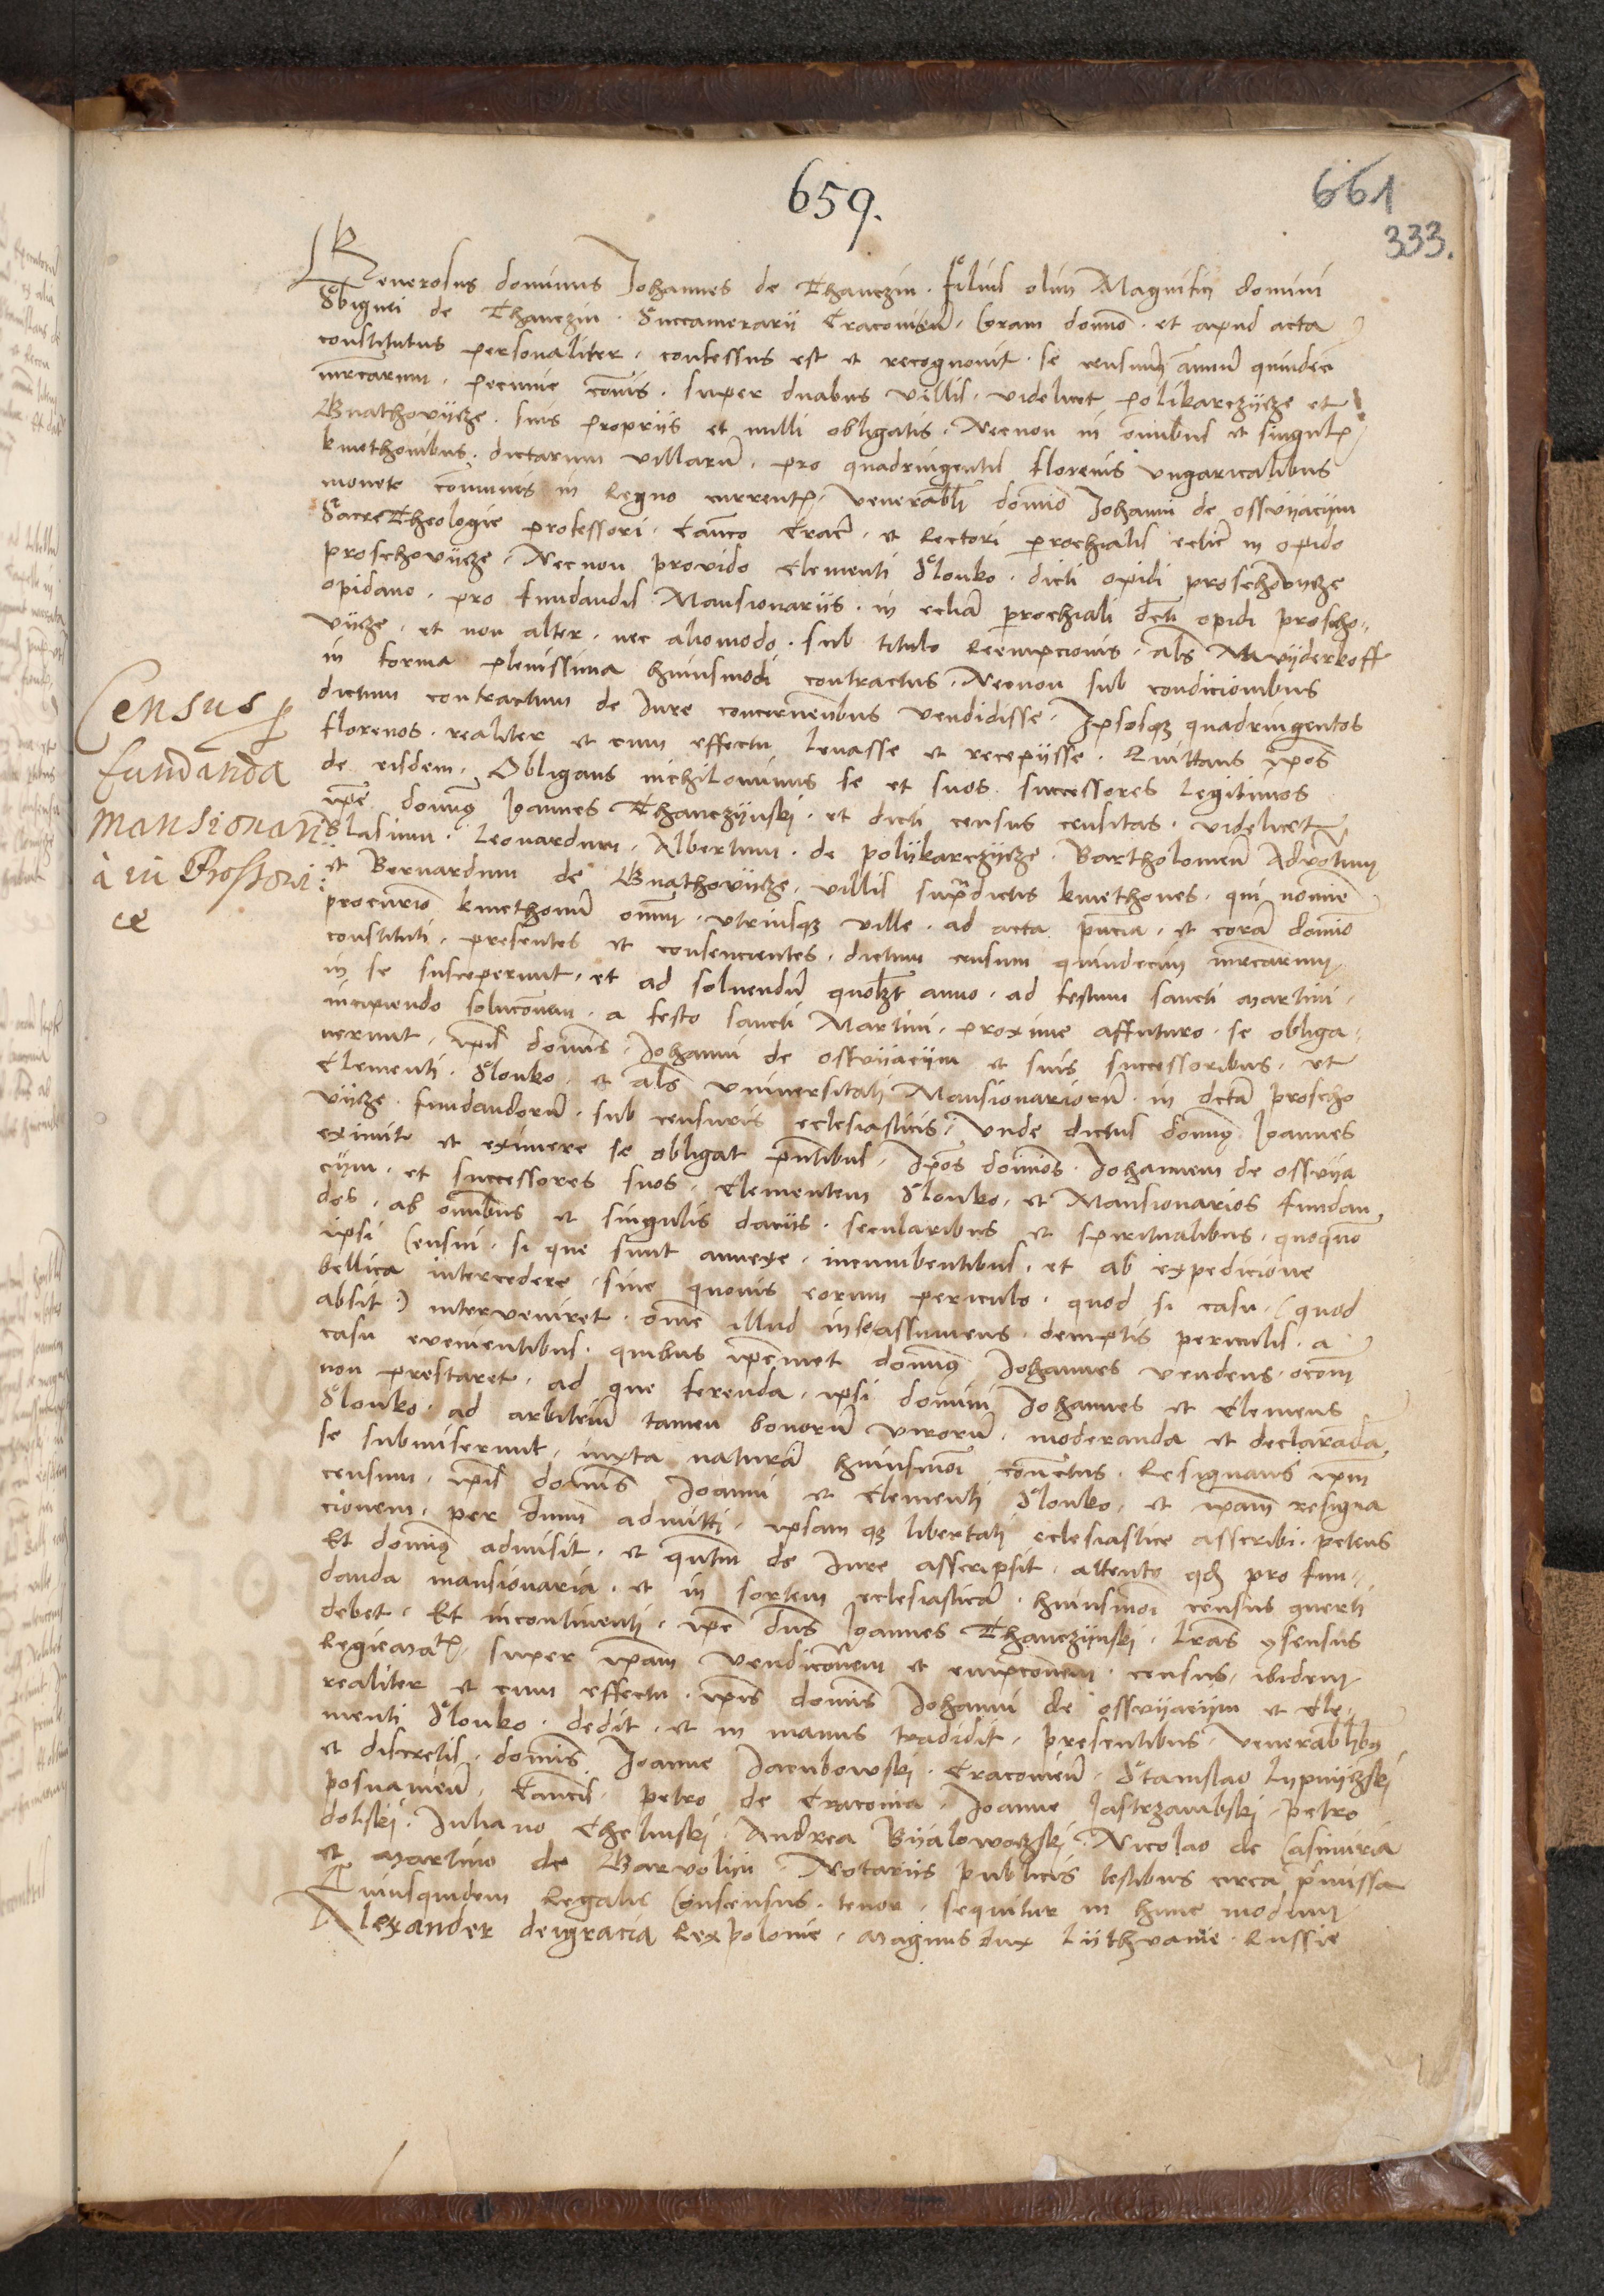 659.
661
333.
Generosus dominus Johannes de Thanczin. filius olim Magnifici domini
Sbignei de Thanczin. Succamerarii Cracoviensis. Coram domino. et apud acta
constitutus personaliter. confessus est et recognovit. se censum annuum quindecim
mrcarum. pecunie cois. super duabus villis. videlicet polikarczycze et
Gnathovycze. suis propriis et nulli obligatis. Necnon in omnibus et singulis
kmethonibus. dictarum villarum. pro quadringentis florenis ungaricalibus
monete communis in Regno currentis. venerabili domino Johanni de osswyaczym
Sacre Theologie professori. Canco Crac. et Rectori parochialis eclie in opido
proschovycze. Necnon provido Clementi Slonko. dicti opidi proschovycze
opidano. pro fundandis Mansionariis. in eclia parochiali dicti opidi proscho-
vycze. et non alter. nec aliomodo. sub titulo Reempcionis. als Na wyderkoff
in forma plenissima huiusmodi contractus. Necnon sub condicionibus
dictum contractum de Iure concernentibus vendidisse. Ipsosque quadringentos
florenos. realiter et cum effectu levasse et recepisse. Quittans ipsos
de eisdem. Obligans nichilominus se et suos successores legitimos
ipse dominus Joannes Thanczynski. et dicti census censitas. videlicet
Blasium. Leonardum. Albertum. de polykarczycze. Bartholomeum
et Bernardum de Gnathovycze. villis supradictis kmethones. qui nomine
procurio kmethonum omnium. utriusque ville. ad acta pncia. et coram domino
constituti. presentes et consencientes. dictum censum quindecim mrcarum
in se susceperunt. et ad solvendum quolibet anno. ad festum sancti Martini.
incipiendo solucionem. a festo sancti Martini. proxime affuturo. se obliga-
verunt. ipsis dominis. Johanni de osswyaczym et suis successoribus. et
Clementi. Slonko. et als universitati Mansionariorum. in dicta proscho
vycze. fundandorum. sub censuris eclesiasticis. Unde dictus dominus Joannes
eximit et eximere se obligat pntibus. Ipsos dominos. Johannem de osswya
czym. et successores suos. Clementem Slonko. et Mansionarios fundan-
dos. ab omnibus et singulis daciis. secularibus et spiritualibus. quoquomodo
ipsi Censui. si que sunt annexe. incumbentibus. et ab expedicione
bellica intercedere. sine quovis eorum periculo. quod si casu. (quod
absit.) interveniret. omne illud in se assumens. demptis periculis. a
casu evenientibus. quibus ipsemet dominus Johannes vendens.
non prestaret. ad que ferenda. ipsi domini Johannes et Clemens
Slonko. ad arbitrium tamen bonorum virorum. moderanda et declaranda.
se submiserunt. iuxta naturam huiusmodi contractus. Resignans ipsum
censum. ipsis dominis Joanni et Clementi Slonko. et ipsam resigna
cionem. per dnum admitti. ipsamque libertati eclesiastice asscribi. petens
Et dominus admisit. et quantum de Iure asscripsit. attento quod pro fun-
danda mansionaria. et in sortem eclesiasticam. huiusmodi census querti
debet. Et incontinenti. ipse dns Joannes Thanczynski. Lras consensus
Regie Matis. super ipsam vendicionem et empcionem. census. ibidem
realiter et cum effectu. ipsis dominis Johanni de osswyaczym et Cle-
menti Slonko. dedit. et in manus tradidit. presentibus. venerabilibus
et discretis. dominis. Joanne Jacubowski. Cracovien. Stanislao Lypnyczski
posnanien. Cancis. petro de Cracovia. Joanne Jastrzambski. petro
dolski. Iuliano Chelmski. Andrea Byalowoczski. Nicolao de Casimiria
et Martino de Barvolyn. Notariis publicis testibus circa premissa
Cuiusquidem Regalis Consensus. tenor. sequitur in hunc modum
Alexander dei gracia Rex polonie. Magnus dux Lythvanie. Russie
Census p
fundanda
mansionari
a in Proschovi
ce